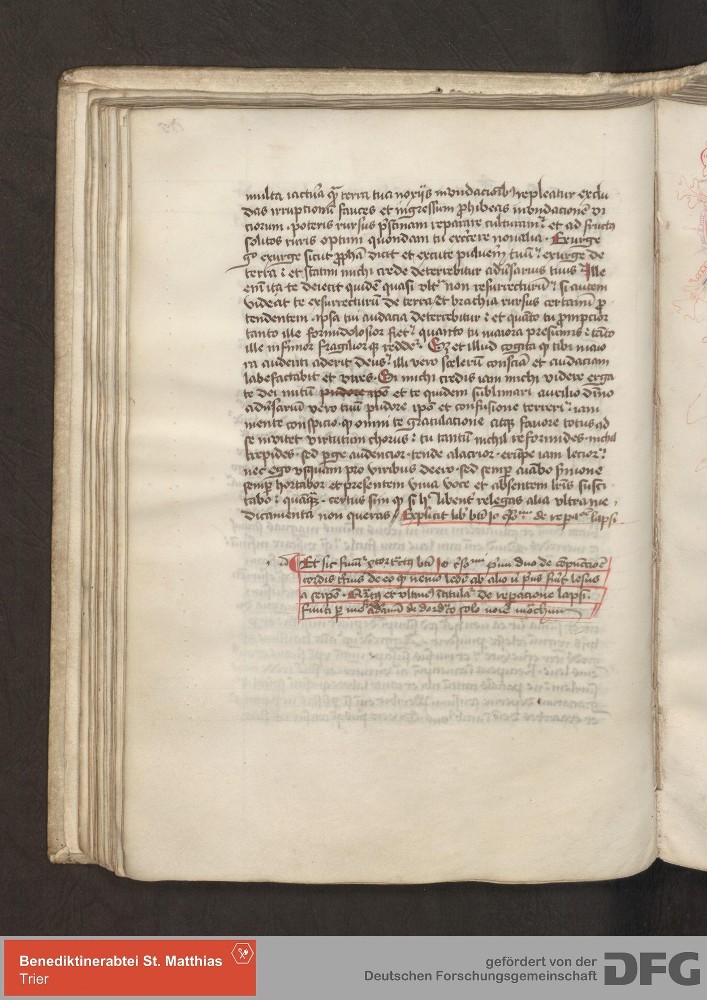 multa iactura qua terra tua noxiis inundacionibus repleatur exclu
das irruptionum fauces et ingressum prohibeas inundacionem vi
ciorum . poteris rursus pristinam reparare culturam et ad fructus
solitos ruris optimi quondam tui exercere novalia . Exurge
ergo exurge sicut propheta dicit et excute pulverem tuum exurge de
terra : et statim michi crede deterrebitur adversarius tuus Ille
enim ita te deiecit quidem quasi ultra non resurrecturum si autem
videat te exsurrecturum de terra et brachia rursus certamini pro
tendentem . ipsa tui audacia deterrebitur : et quanto tu prompcior
tanto ille formidolosior fiet quanto tu maiora presumis : tanto
ille infirmior fragiliorque reddetur . Sed et illud cogita quod tibi maio
ra audenti aderit deus illi vero scelerum consciam et audaciam
labefactabit et vires . Si michi credis iam michi videre erga
te dei nutum et te quidem sublimari auxilio divino
adversarium vero tuum pudore ipso et confusione terreri iam
mente conspicio . quod omni te gratulacione atque favore totus ad
se invitet virtutum chorus : tu tantum nichil reformides . nichil
trepides . sed perge audencior . tende alacrior . eripe iam lecior
nec ego usquam pro viribus deero . sed semper ambo sermone
semper hortabor et presentem viva voce et absentem litteris susci
tabo : quamquam . certus sim quod si hec libenter relegas alia ultra me
dicamenta non queras / Explicit liber beati Jo de reparatione lapsi
Et sic finitur beati Jo primi duo de compunctione
cordis tercius de eo quod nemo leditur ab alio ni prius fuerit lesus
a seipso . Quartus et ultimus titulatur de reparacione lapsi .
finiti per me de dordraco solo nomine monachum
Benediktinerabtei St. Matthias
Trier
gefördert von der
Deutschen Forschungsgemeinschaft
DFG